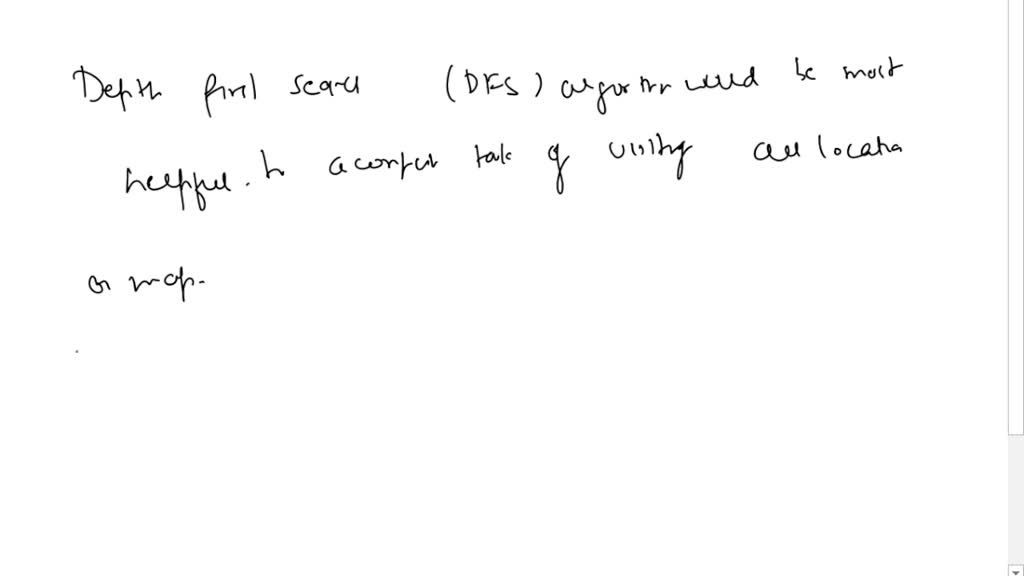 Depth first search (DFS) algorithm would be most
helpful. to accomplish task of visiting all location
on map.